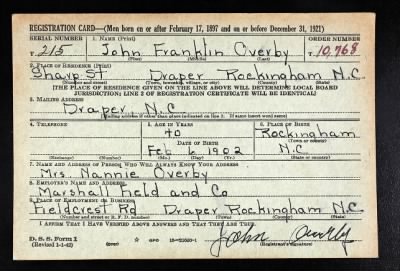 REGISTRATION CARD—(Men born on or after February 17, 1897 and on or before December 31, 1921)
SERIAL NUMBER 1. NAME (Print) ORDER NUMBER
215 John Franklin Overby 10,768
(First) (Middle) (Last)
2. PLACE OF RESIDENCE (Print)
Sharp St Draper Rockingham N.C
(Number and street) (Town, township, village, or city) (County) (State)
[THE PLACE OF RESIDENCE GIVEN ON THE LINE ABOVE WILL DETERMINE LOCAL BOARD
JURISDICTION; LINE 2 OF REGISTRATION CERTIFICATE WILL BE IDENTICAL]
3. MAILING ADDRESS
Draper N.C
[Mailing address if other than place indicated on line 2. If same insert word same]
4. TELEPHONE 5. AGE IN YEARS 6. PLACE OF BIRTH
40 Rockingham
DATE OF BIRTH (Town or county)
Feb 6 1902 N.C.
(Exchange) (Number) (Mo.) (Day) (Yr.) (State or country)
7. NAME AND ADDRESS OF PERSON WHO WILL ALWAYS KNOW YOUR ADDRESS
Mrs. Nannie Overby
8. EMPLOYER'S NAME AND ADDRESS
Marshall Field and Co
9. PLACE OF EMPLOYMENT OR BUSINESS
Fieldcrest Rd Draper Rockingham N.C.
(Number and street or R. F. D. number) (Town) (County) (State)
I AFFIRM THAT I HAVE VERIFIED ABOVE ANSWERS AND THAT THEY ARE TRUE.
D. S. S. Form 1
(Revised 1-1-42) (over) GPO John Overby
(Registrant's signature)